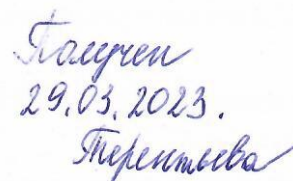 Получен
29.03.2023.
Терентьева